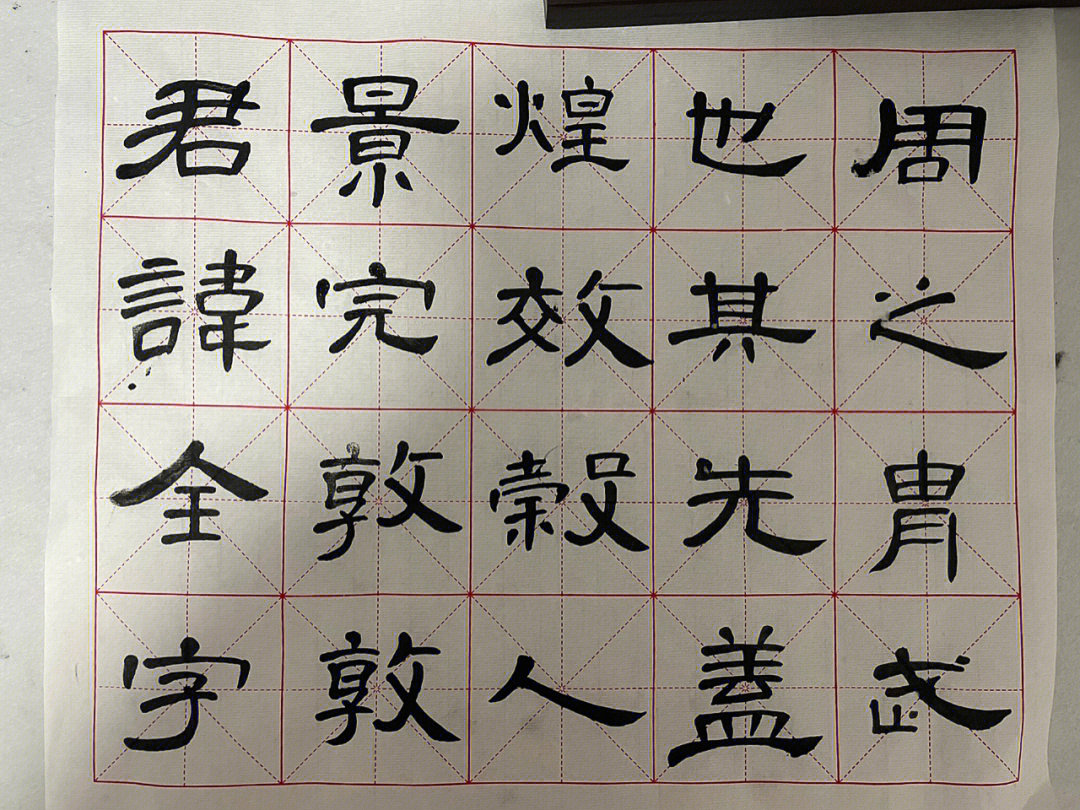 君諱全字
景完敦敦
煌效穀人
也其先蓋
周之胄武